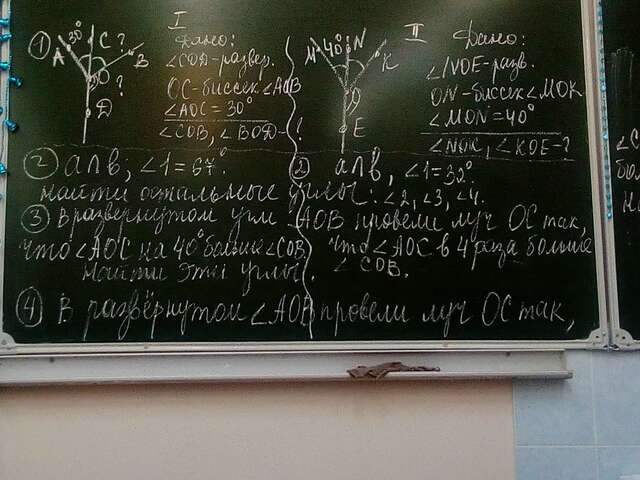 I
① 30° C ? A B O ? D
Дано:
∠COD-развер.
OC-биссек ∠AOB
∠AOC = 30°
∠COB, ∠BOD-?
II
M 40° N K O E
Дано:
∠NOE-разв.
ON-биссек ∠MOK
∠MON = 40°
∠NOK, ∠KOE-?
② a∩b; ∠1 =
② a∩b, ∠1 = 32°
найти остальные углы: ∠2, ∠3, ∠4.
③ В развернутом угл AOB провели луч OC так,
что ∠AOC на 40° больше ∠COB.
Найти эти углы.
что ∠AOC в 4 раза больше
∠COB.
④ В развёрнутом ∠AOB провели луч OC так,